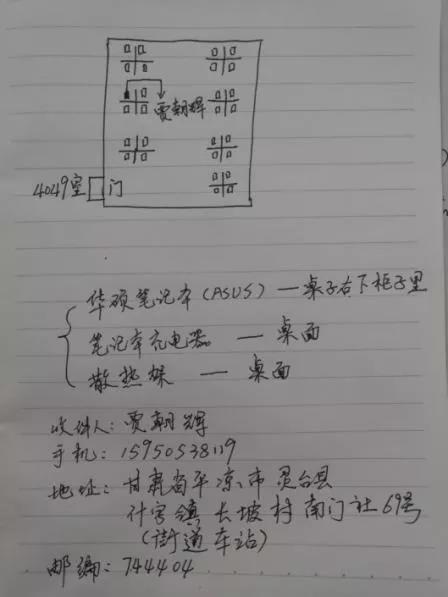 贾朝辉
4049室 门
华硕笔记本(ASUS) — 桌子右下柜子里
笔记本充电器 — 桌面
散热垛 — 桌面
收件人: 贾朝辉
手机: 15950538119
地址: 甘肃省平凉市灵台县
什字镇长坡村南门社69号
(街道车站)
邮编: 744404